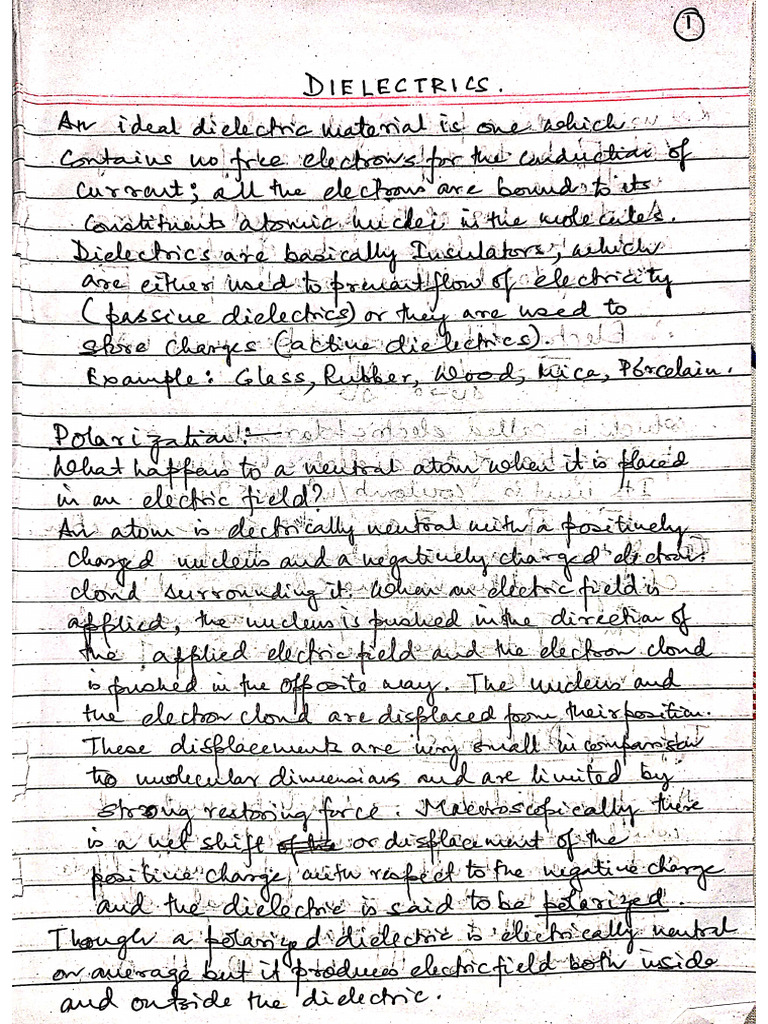 1
DIELECTRICS.
An ideal dielectric material is one which
contains no free electrons for the conduction of
current; all the electrons are bound to its
constituents atomic nuclei in the molecules.
Dielectrics are basically Insulators, which
are either used to prevent flow of electricity
(passive dielectrics) or they are used to
store charges (active dielectrics).
Example: Glass, Rubber, Wood, Mica, Porcelain.
Polarization:
What happens to a neutral atom when it is placed
in an electric field?
An atom is electrically neutral with a positively
charged nucleus and a negatively charged electron
cloud surrounding it. When an electric field is
applied, the nucleus is pushed in the direction of
the applied electric field and the electron cloud
is pushed in the opposite way. The nucleus and
the electron cloud are displaced from their position.
These displacements are very small in comparison
to molecular dimensions and are limited by
strong restoring force. Macroscopically there
is a net shift or displacement of the
positive charge with respect to the negative charge
and the dielectric is said to be polarized.
Though a polarized dielectric is electrically neutral
on average but it produces electric field both inside
and outside the dielectric.